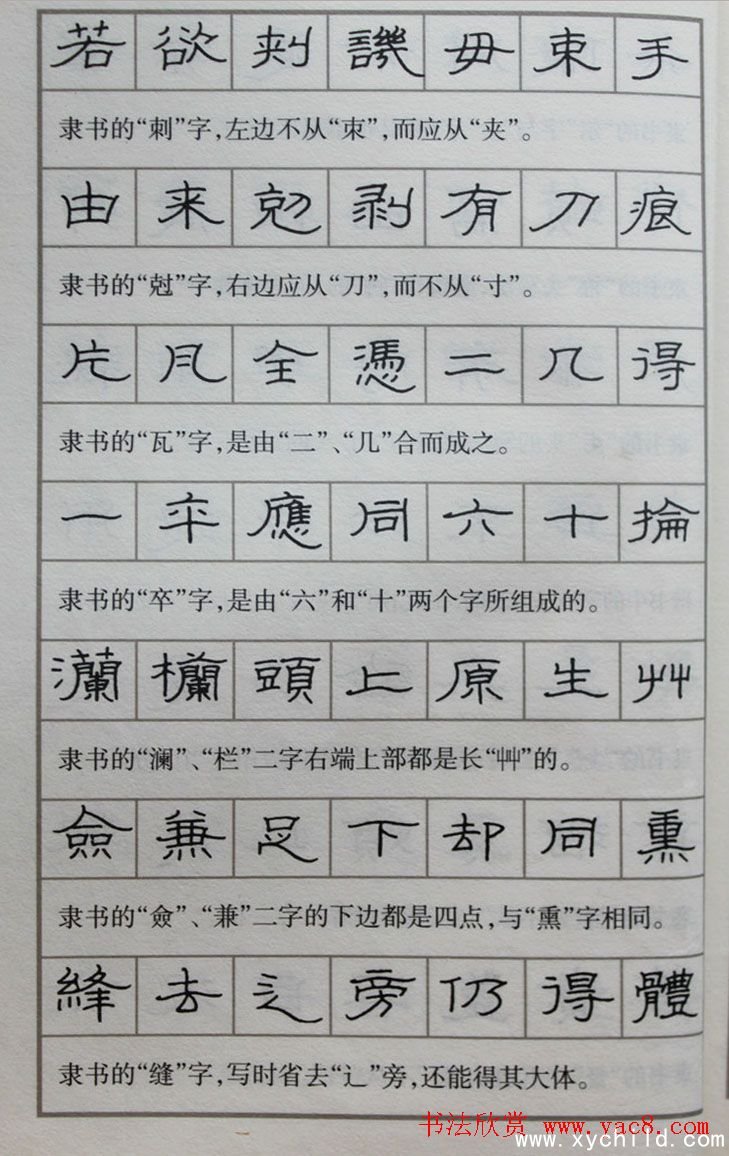 若欲刾譏毋束手
隶书的“刺”字，左边不从“朿”，而应从“夹”。
由来勊剥有刀痕
隶书的“尅”字，右边应从“刀”，而不从“寸”。
片凡全憑二几得
隶书的“瓦”字，是由“二”、“几”合而成之。
一卒應同六十掄
隶书的“卒”字，是由“六”和“十”两个字所组成的。
瀾欄頭上原生艸
隶书的“澜”、“栏”二字右端上部都是长“艸”的。
僉兼足下却同熏
隶书的“僉”、“兼”二字的下边都是四点，与“熏”字相同。
縫去辶旁仍得體
隶书的“缝”字，写时省去“辶”旁，还能得其大体。
书法欣赏 www.yac8.com
www.xychild.com